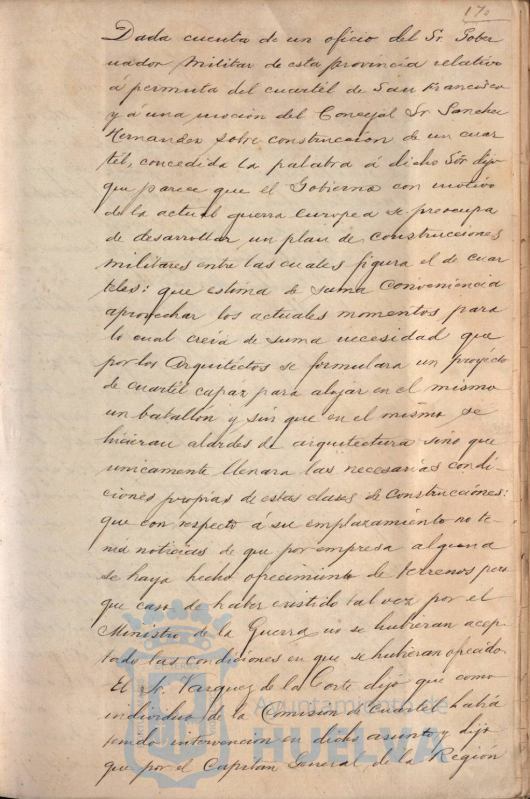 170
Dada cuenta de un oficio del Sr. Gober
nador Militar de esta provincia relativo
á permuta del cuartél de San Francisco
y á una mocion del Concejal Sr. Sanchez
Hernandez sobre construccion de un cuar
tél, concedida la palabra á dicho Sór dijo
que parece que el Gobierno con motivo
de la actual guerra europea se preocupa
de desarrollar un plan de construcciones
militares entre las cuales figura el de cuar
teles: que estima de suma conveniencia
aprovechar los actuales momentos para
lo cual creia de suma necesidad que
por los Arquitéctos se formulara un proyécto
de cuartél capáz para alojar en el mismo
un batallón y sin que en el mismo se
hicieran alardes de arquitectura sino que
unicamente llenara las necesarias condi
ciones propias de estas clases de construcciónes:
que con respecto á su emplazamiento no te
nia noticias de que por empresa alguna
se haya hecho ofrecimiento de terrenos pero
que caso de haber existido tal vez por el
Ministro de la Guerra no se hubieran acep
tado las condiciones en que se hubieran ofrecido.
El Sr. Vazquez de la Corte dijo que como
individuo de la Comision de Cuartel habia
tenido intervencion en dicho asunto y dijo
que por el Capitan General de la Región
Ayuntamiento de
HUELVA